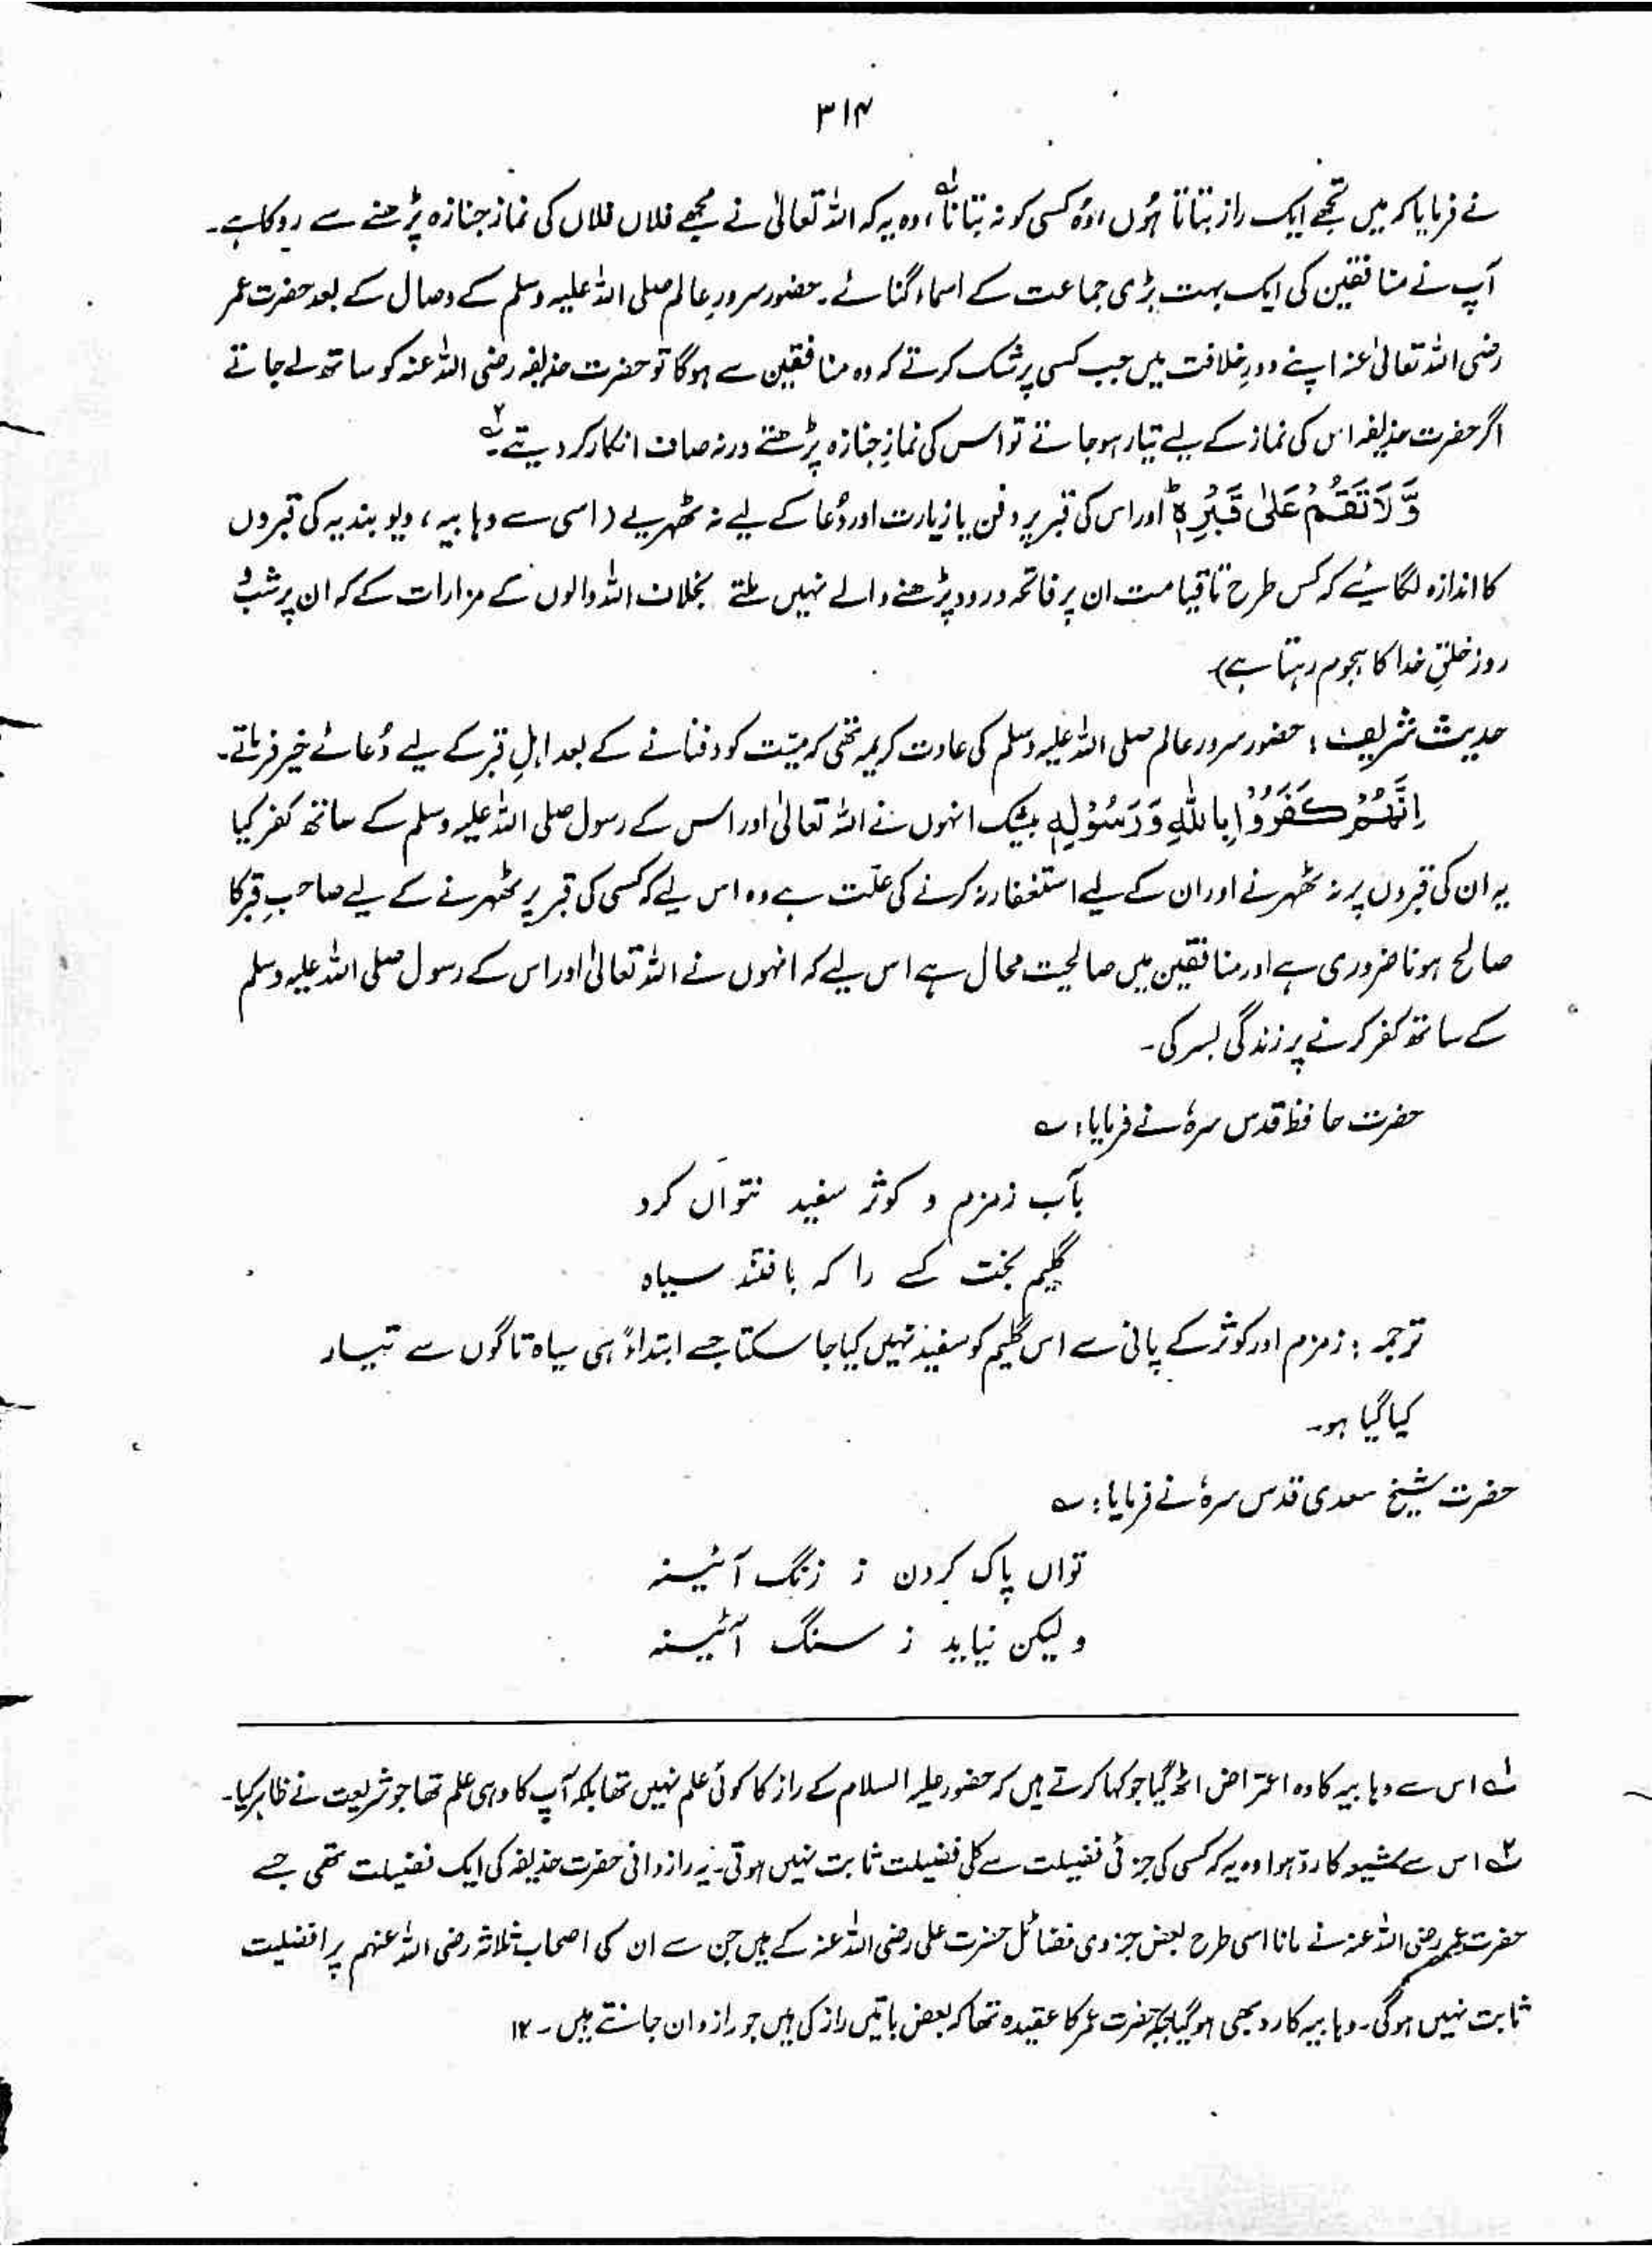 ۳۱۴
نے فرمایا کہ میں تجھے ایک راز بتاتا ہُوں ، وُہ کسی کو نہ بتانا؎۱، وہ یہ کہ اللہ تعالیٰ نے مجھے فلاں فلاں کی نماز جنازہ پڑھنے سے روکا ہے۔
آپ نے منافقین کی ایک بہت بڑی جماعت کے اسماء گنائے۔ حضور سرورِ عالم صلی اللہ علیہ وسلم کے وصال کے بعد حضرت عمر
رضی اللہ تعالیٰ عنہ اپنے دورِ خلافت میں جب کسی پر شک کرتے کہ وہ منافقین سے ہوگا تو حضرت حذیفہ رضی اللہ عنہ کو ساتھ لے جاتے
اگر حضرت حذیفہ اس کی نماز کے لیے تیار ہو جاتے تو اس کی نمازِ جنازہ پڑھتے ورنہ صاف انکار کر دیتے؎۲۔
وَّلَا تَقُمْ عَلٰى قَبْرِهٖ ؕ اور اس کی قبر پر دفن یا زیارت اور دُعا کے لیے نہ ٹھہریے (اسی سے وہابیہ ، دیوبندیہ کی قبروں
کا اندازہ لگائیے کہ کس طرح تا قیامت ان پر فاتحہ درود پڑھنے والے نہیں ملتے بخلاف اللہ والوں کے مزارات کے کہ ان پر شب و
روز خلقِ خدا کا ہجوم رہتا ہے)
حدیث شریف : حضور سرور عالم صلی اللہ علیہ وسلم کی عادت کریمہ تھی کہ میّت کو دفنانے کے بعد اہلِ قبر کے لیے دُعائے خیر فرماتے۔
اِنَّهُمْ كَفَرُوْا بِاللّٰهِ وَرَسُوْلِهٖ بیشک انہوں نے اللہ تعالیٰ اور اس کے رسول صلی اللہ علیہ وسلم کے ساتھ کفر کیا
یہ ان کی قبروں پر نہ ٹھہرنے اور ان کے لیے استغفار نہ کرنے کی علّت ہے وہ اس لیے کہ کسی کی قبر پر ٹھہرنے کے لیے صاحبِ قبر کا
صالح ہونا ضروری ہے اور منافقین میں صالحیت محال ہے اس لیے کہ انہوں نے اللہ تعالیٰ اور اس کے رسول صلی اللہ علیہ وسلم
کے ساتھ کفر کرنے پر زندگی بسر کی۔
حضرت حافظ قدس سرہٗ نے فرمایا: ؎
بآب زمزم و کوثر سفید نتواں کرد
گلیم بخت کسے را کہ بافتند سیاہ
ترجمہ : زمزم اور کوثر کے پانی سے اس گلیم کو سفید نہیں کیا جا سکتا جسے ابتداءً ہی سیاہ تاگوں سے تیار
کیا گیا ہو۔
حضرت شیخ سعدی قدس سرہٗ نے فرمایا: ؎
تواں پاک کردن ز زنگ آئینہ
ولیکن نیاید ز سنگ آئینہ
؎۱ اس سے وہابیہ کا وہ اعتراض اٹھ گیا جو کہا کرتے ہیں کہ حضور علیہ السلام کے راز کا کوئی علم نہیں تھا بلکہ آپ کا وہی علم تھا جو شریعت نے ظاہر کیا۔
؎۲ اس سے شیعہ کا ردّ ہوا وہ یہ کہ کسی کی جزئی فضیلت سے کلی فضیلت ثابت نہیں ہوتی۔ یہ رازدانی حضرت حذیفہ کی ایک فضیلت تھی جسے
حضرت عمر رضی اللہ عنہ نے مانا اسی طرح بعض جزوی فضائل حضرت علی رضی اللہ عنہ کے ہیں جن سے ان کی اصحاب ثلاثہ رضی اللہ عنہم پر افضلیت
ثابت نہیں ہوگی۔ وہابیہ کا رد بھی ہو گیا جبکہ حضرت عمر کا عقیدہ تھا کہ بعض باتیں راز کی ہیں جو رازدان جانتے ہیں۔ ۱۲